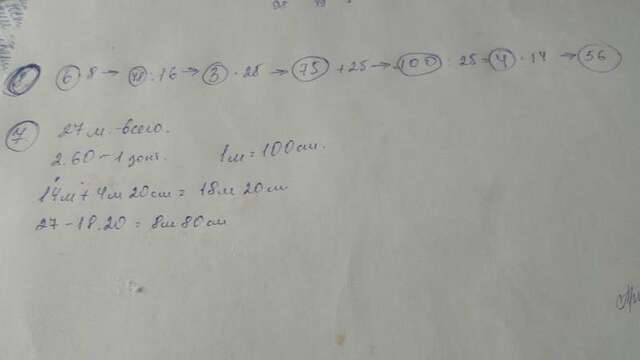 6 · 8 → 48 : 16 → 3 · 25 → 75 + 25 → 100 : 25 → 4 · 14 → 56
7. 27 м. - всего.
2.60 - 1 дект. 1м = 100 см.
14м + 4м 20см = 18м 20см
27 - 18.20 = 8м 80см